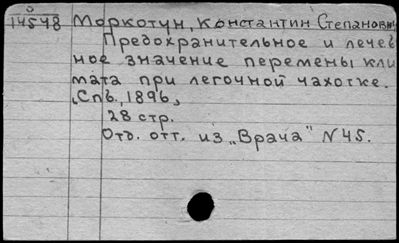 14548 Моркотун, Константин Степанович
Предохранительное и лечеб
ное значение перемены кли
мата при легочной чахотке.
Спб., 1896,
28 стр.
Отд. отт. из „Врача" N 45.